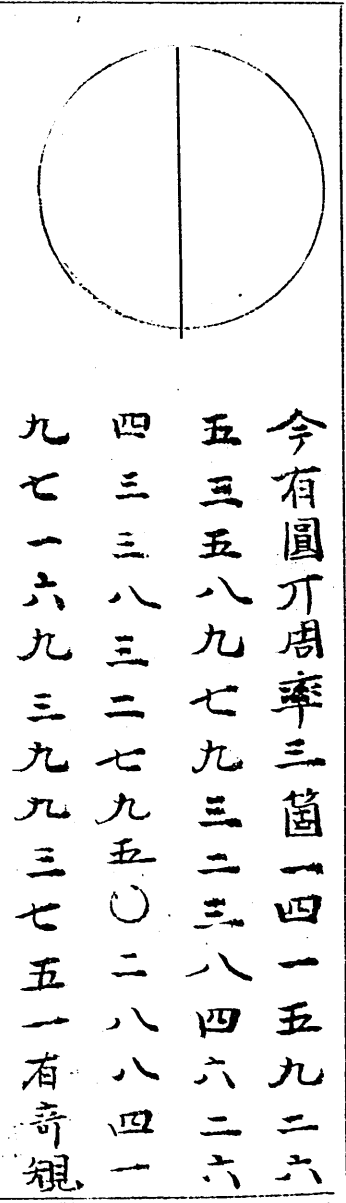 今有圓丌周率三箇一四一五九二六
五三五八九七九三二三八四六二六
四三三八三二七九五〇二八八四一
九七一六九三九九三七五一有奇観